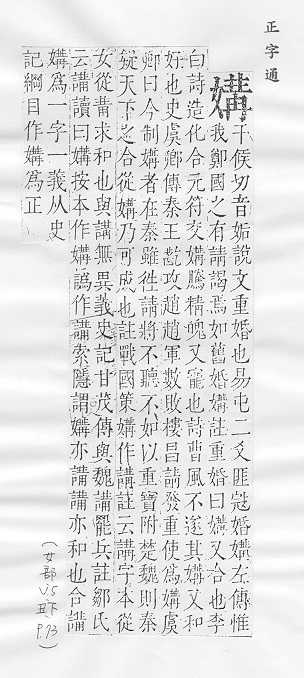 正字通
媾
干侯切音姤說文重婚也易屯二爻匪寇婚媾左傳惟
我鄭國之有請謁焉如舊婚媾註重婚曰媾又合也李
白詩造化合元符交媾騰精魄又寵也詩曹風不遂其媾又和
好也史虞卿傳秦王齕攻趙趙軍數敗樓昌請發重使爲媾虞
卿曰今制媾者在秦雖往請將不聽不如以重寶附楚魏則秦
疑天下之合從媾乃可成也註戰國策媾作講註云講字本從
女從冓求和也與講無異義史記甘茂傳與魏講罷兵註鄒氏
云講讀曰媾按本作媾譌作講索隱謂媾亦講講亦和也合講
媾爲一字一義从史
記綱目作媾爲正
(女部 V5 丑下 P.93)